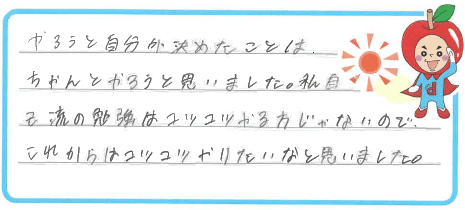 やろうと自分が決めたことは、
ちゃんとやろうと思いました。私自
己流の勉強はコツコツやる方じゃないので、
これからはコツコツやりたいなと思いました。